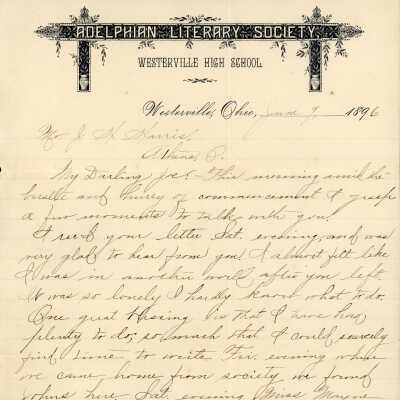 ADELPHIAN LITERARY SOCIETY.
WESTERVILLE HIGH SCHOOL
Westerville, Ohio, June 9, 1896
Mr J. H. Harris,
Athens O.
My Darling Joe:- This morning amid the
bustle and hurry of commencement I grasp
a few moments to talk with you.
I rec'd your letter Sat. evening, and was
very glad to hear from you. I almost felt like
I was in another world after you left
It was so lonely I hardly know what to do.
One great blessing is that I have had
plenty to do; so much that I could scarcely
find time to write. Fri. evening when
we came home from society we found
Johns here. Sat. evening Miss